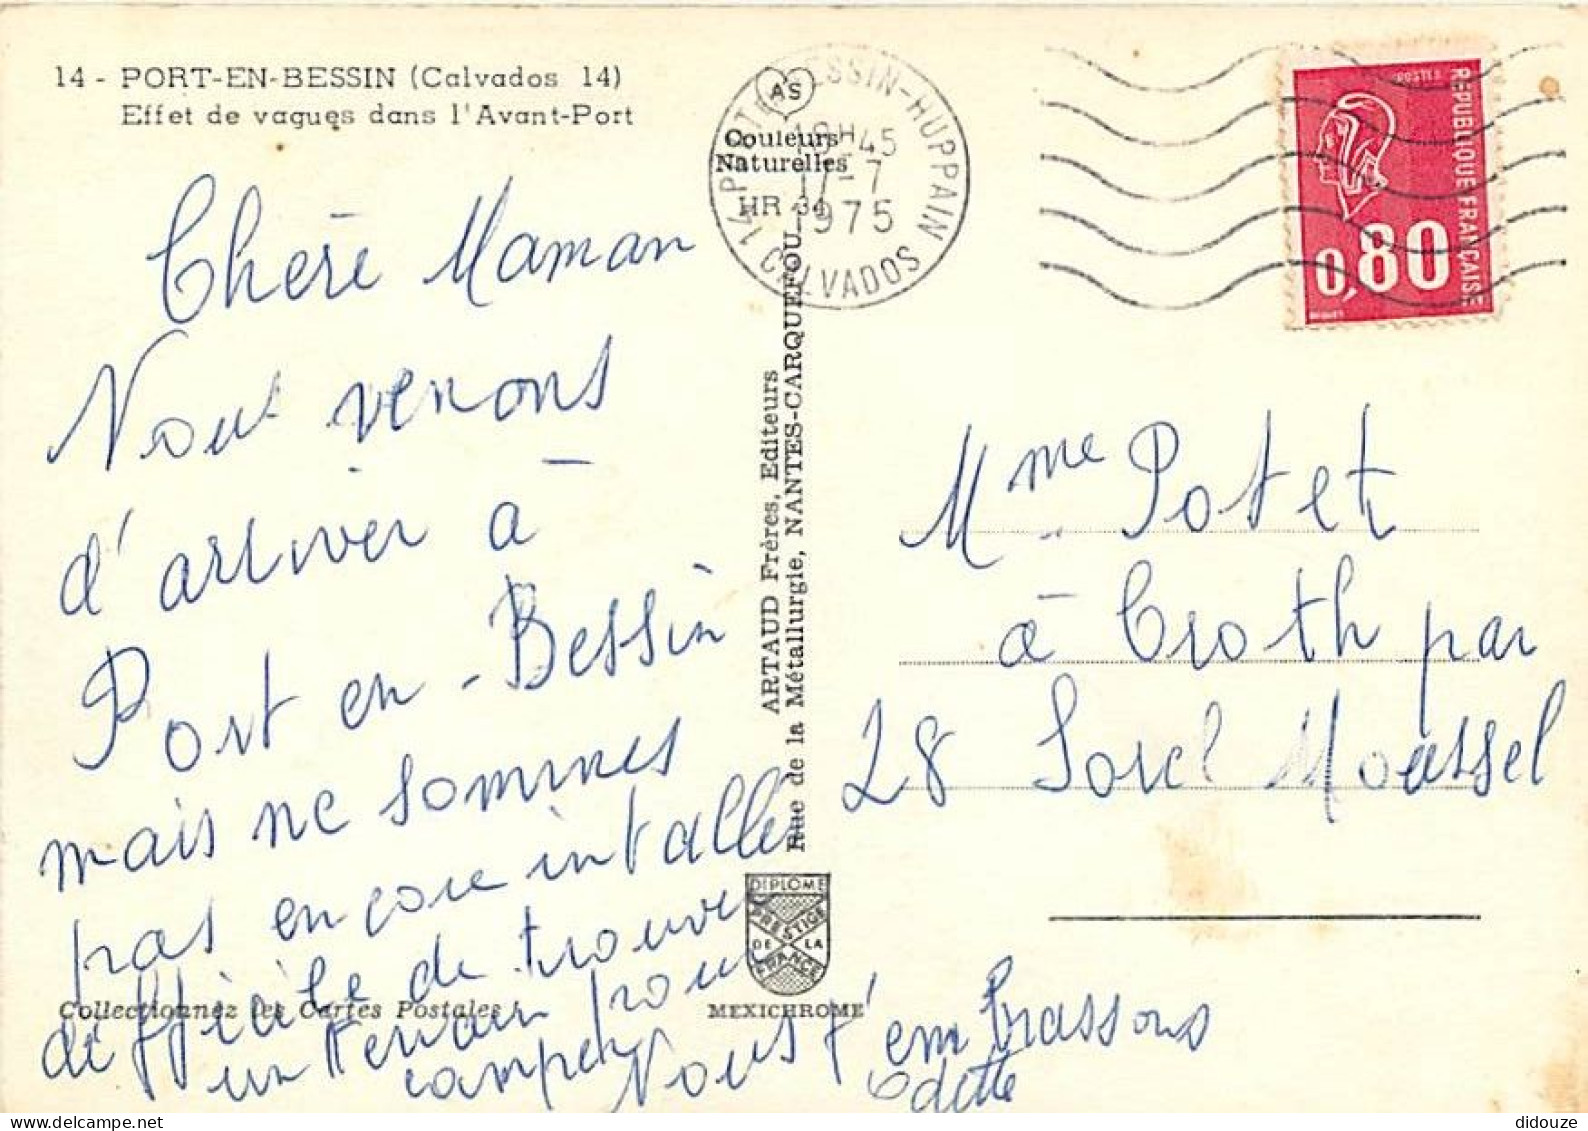 14 - PORT-EN-BESSIN (Calvados 14)
Effet de vagues dans l'Avant-Port
AS
Couleurs
Naturelles
HR 34
14 PORT-EN-BESSIN-HUPPAIN
18H45
17-7
1975
CALVADOS
REPUBLIQUE FRANÇAISE
0,80
Chère Maman
Nous venons
d'arriver à
Port en-Bessin
mais ne sommes
pas encore intaller
difficile de trouver
un terrain pour
camper
Nous t'embrassons
Odette
Mme Potet
à Croth par
28 Sorel Moussel
ARTAUD Frères, Editeurs
Rue de la Métallurgie, NANTES-CARQUEFOU
DIPLOME
PRESTIGE
DE LA
FRANCE
Collectionnez les Cartes Postales !
MEXICHROME
didouze